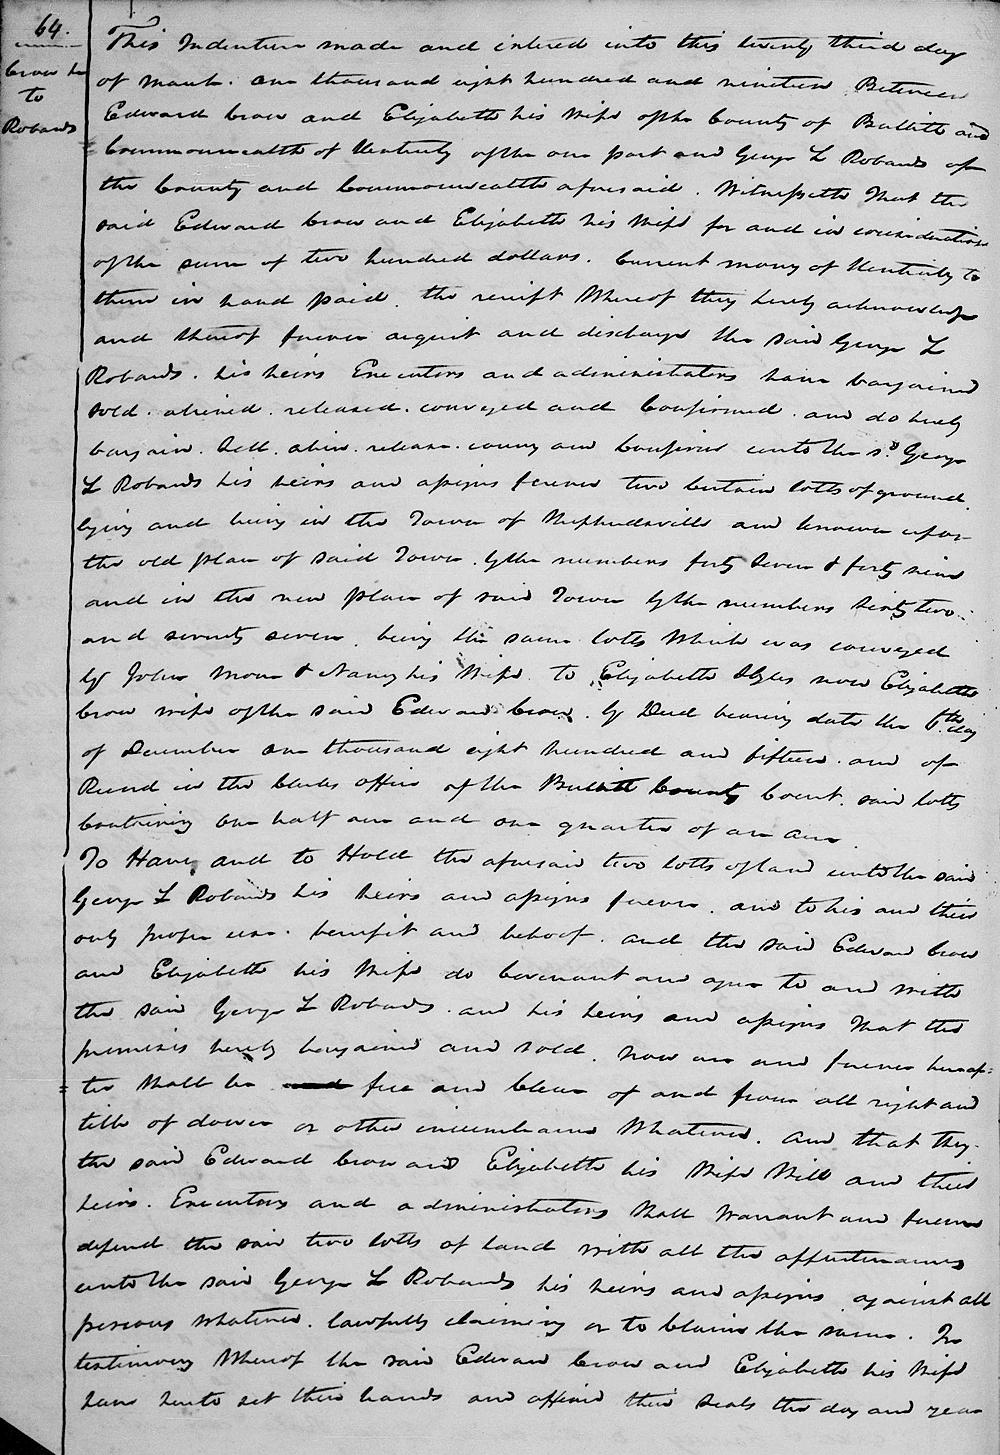 64.
Crow &c
to
Robards
This Indenture made and entered into this twenty third day
of March. one thousand eight hundred and nineteen Between
Edward Crow and Elizabeth his Wife of the County of Bullitt and
Commonwealth of Kentucky of the one part and George L Robards of
the County and Commonwealth aforesaid. Witnesseth That the
said Edward Crow and Elizabeth his Wife for and in consideration
of the sum of two hundred dollars. Current money of Kentucky to
them in hand paid. the receipt Whereof they hereby acknowledge
and thereof forever acquit and discharge the said George L
Robards. his heirs Executors and administrators have bargained
sold. aliened. released. conveyed and Confirmed. and do hereby
bargain. Sell. alien. release. convey and Confirm unto the sd. George
L Robards his heirs and assigns forever two certain lotts of ground.
lying and being in the Town of Shepherdsville and known upon
the old plan of said Town. by the numbers forty Seven & forty nine
and in the new plan of said Town by the numbers Sixty two
and seventy seven. being the same lotts Which was conveyed
by John & Nancy his Wife. to Elizabeth now Elizabeth
Crow wife of the said Edward Crow. by Deed bearing date the 6th. day
of December one thousand eight hundred and fifteen. and of
Record in the Clerks office of the Bullitt County Court. said lotts
Containing one half acre and one quarter of an acre.
To Have and to Hold the aforesaid two lotts of land unto the said
George L Robards his heirs and assigns forever. and to his and their
only proper use. benefit and behoof. and the said Edward Crow
and Elizabeth his Wife do Covenant and agree to and with
the said George L Robards. and his heirs and assigns That the
premises hereby bargained and sold. now are and forever hereaf=
=ter shall be free and Clear of and from all right and
title of dower or other incumbrance Whatever. And that they
the said Edward Crow and Elizabeth his Wife Will and their
heirs. Executors and administrators shall Warrant and forever
defend the said two lotts of land with all the appurtenances
unto the said George L Robards his heirs and assigns against all
persons whatever. lawfully claiming or to claim the same. In
testimony Whereof the said Edward Crow and Elizabeth his Wife
have hereto set their hands and affixed their Seals the day and year